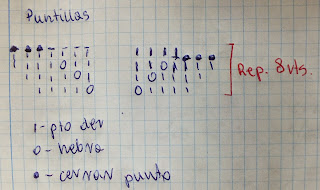 Puntillas
● ● ● - - - -   I I I I ● ● ●
I I I I O I I   I I O I I I I
I I I I I O I   I O I I
I I I I I I O   O I I I
Rep. 8 vts.
I - pto der
O - hebra
● - cerrar punto